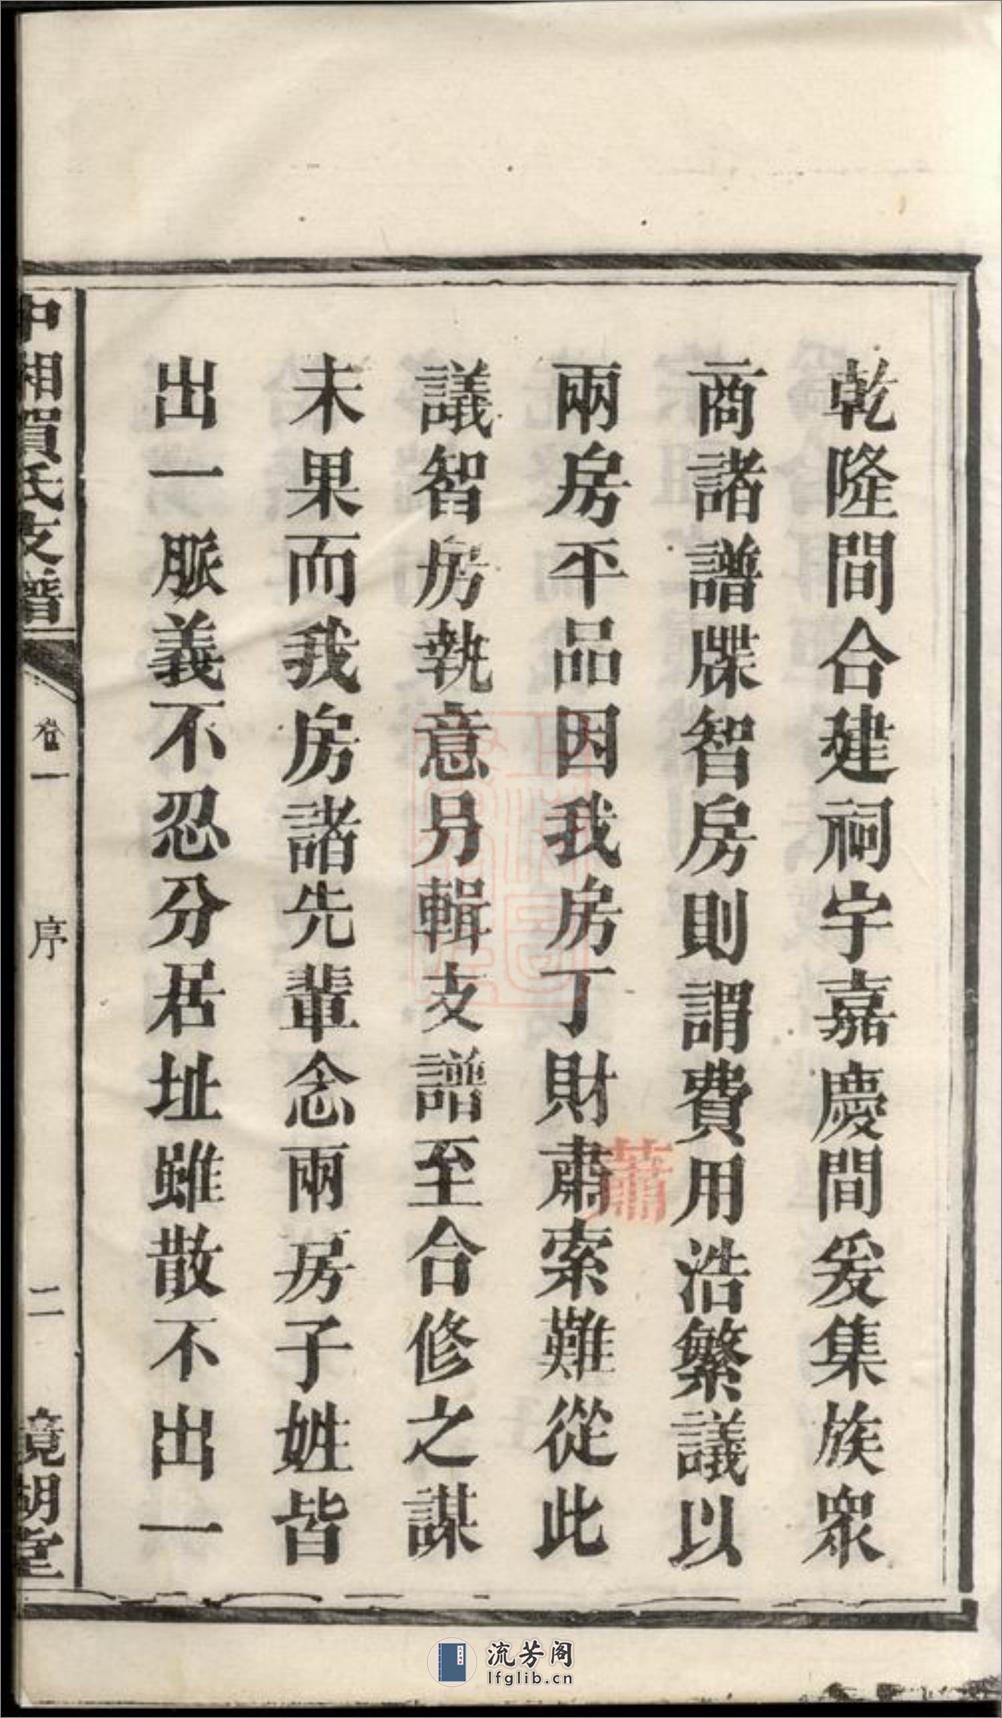 乾隆間合建祠宇嘉慶間爰集族眾
商諸譜牒智房則謂費用浩繁議以
兩房平品因我房丁財肅索難從此
議智房執意另輯支譜至合修之謀
未果而我房諸先輩念兩房子姓皆
出一脈義不忍分居址雖散不出一
中湘賀氏支譜
卷一
序
二
鏡湖堂
蕭
流芳阁
lfglib.cn